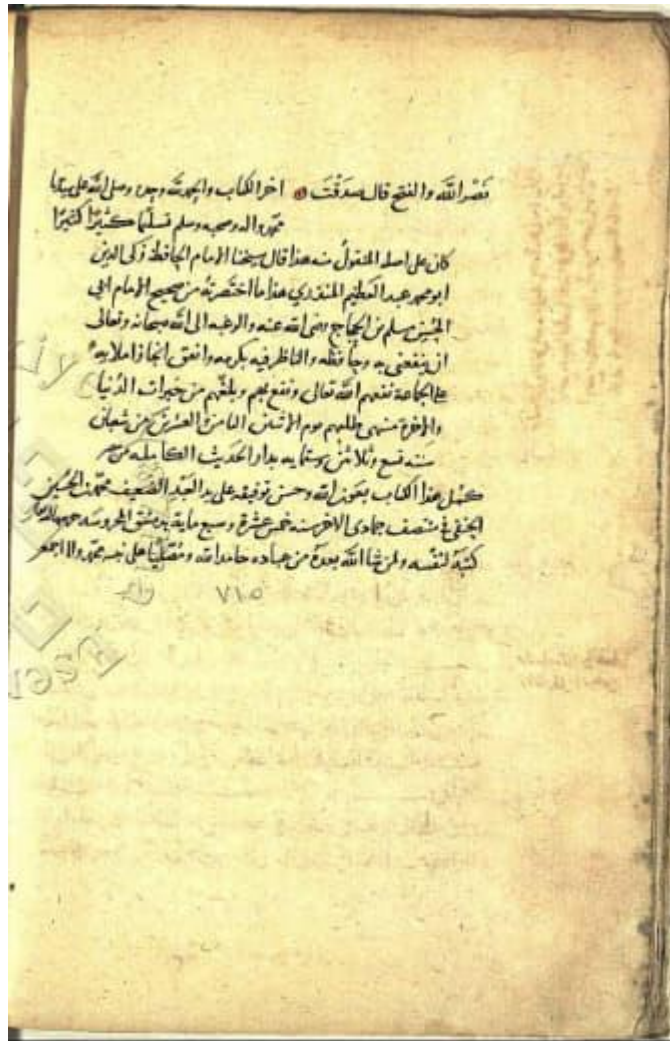 نَصْر الله والفتح قال صدقْتَ اخر الكتاب والحمد لله وحده وصلى الله على سيدنا
محمد واله وصحبه وسلم تسليمًا كثيرًا كثيرًا
كان على اصله المنقول منه هذا قال شيخنا الامام الحافظ زكى الدين
ابو محمد عبد العظيم المنذري هذا ما اختصرته من صحيح الامام ابي
الحسين مسلم بن الحجاج رضى الله عنه والرغبه الى الله سبحانه وتعالى
ان ينفعنى به وحافظه والناظر فيه بكرمه واتفق انجاز املايه
على الجماعة نفعهم الله تعالى ونفع بهم وبلغهم من خيرات الدنيا
والاخرة منتهى طلبهم يوم الاثنين الثامن والعشرين من شعبان
سنه تسع وثلاثين وستمايه بدار الحديث الكامليه من مصر
كمل هذا الكتاب بعون الله وحسن توفيقه على يد العبد الضعيف محمد بن الحسين
الحنفي في منتصف جمادى الاخر سنه خمس عشرة وسبع ماية بدمشق المحروسه
كتبه لنفسه ولمن شا الله بعده من عباده حامدا لله ومصليًا على نبيه محمد واله اجمعين
٧١٥